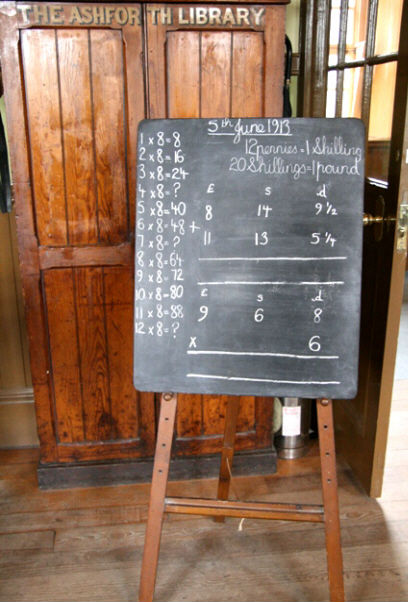 THE ASHFORTH LIBRARY
5th June 1913
12pennies=1Shilling
20Shillings=1pound
1 x 8 = 8
2 x 8 = 16
3 x 8 = 24
4 x 8 = ?
5 x 8 = 40
6 x 8 = 48
7 x 8 = ?
8 x 8 = 64
9 x 8 = 72
10 x 8 = 80
11 x 8 = 88
12 x 8 = ?
£ s d
8 14 9 1/2
+
11 13 5 1/4
£ s d
9 6 8
x 6